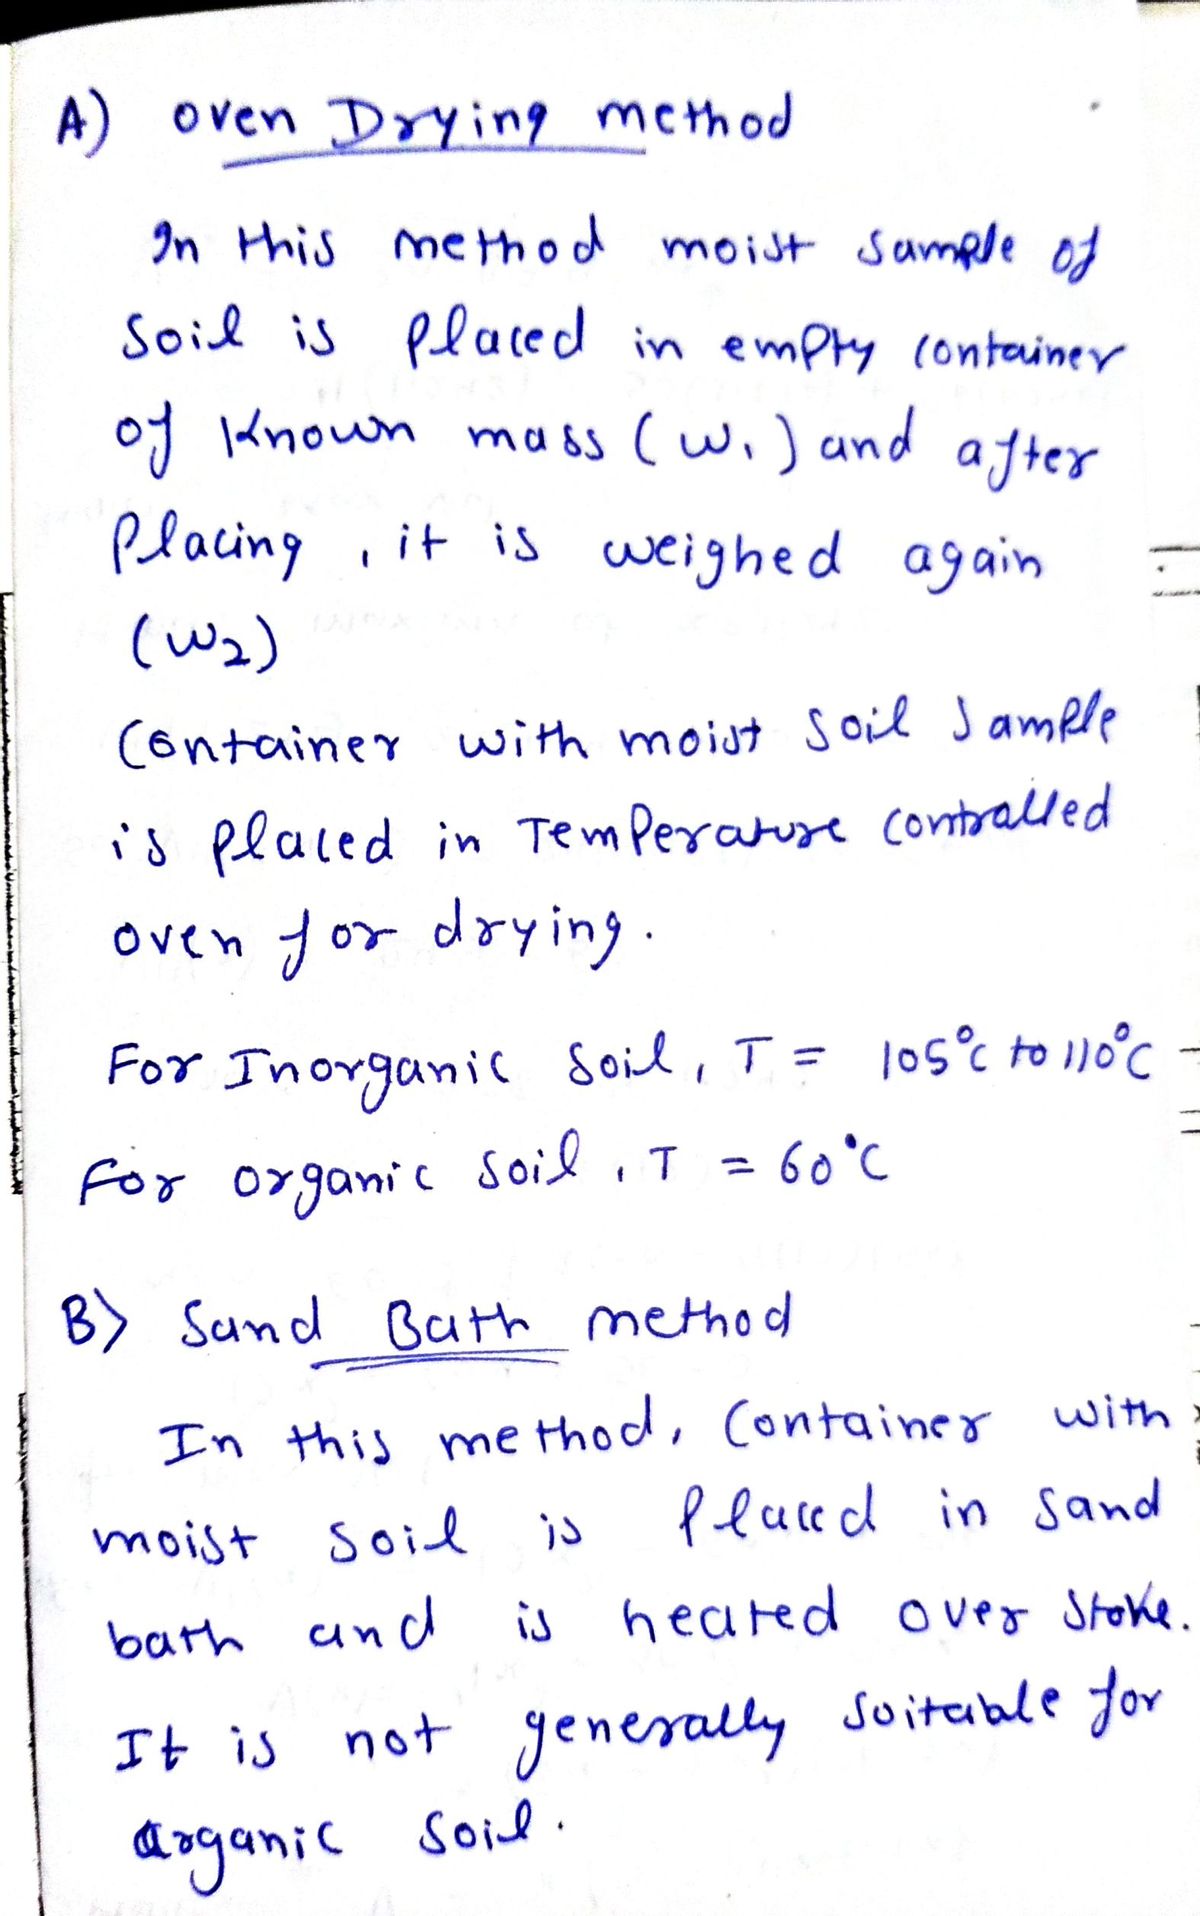 A) oven Drying method
In this method moist sample of
soil is placed in empty container
of known mass (W₁) and after
placing, it is weighed again
(W₂)
Container with moist soil sample
is placed in Temperature contralled
oven for drying.
For Inorganic soil, T = 105°C to 110°C
For organic soil, T = 60°C
B) Sand Bath method
In this method, Container with
moist soil is placed in sand
bath and is heated over stoke.
It is not generally suitable for
organic soil.